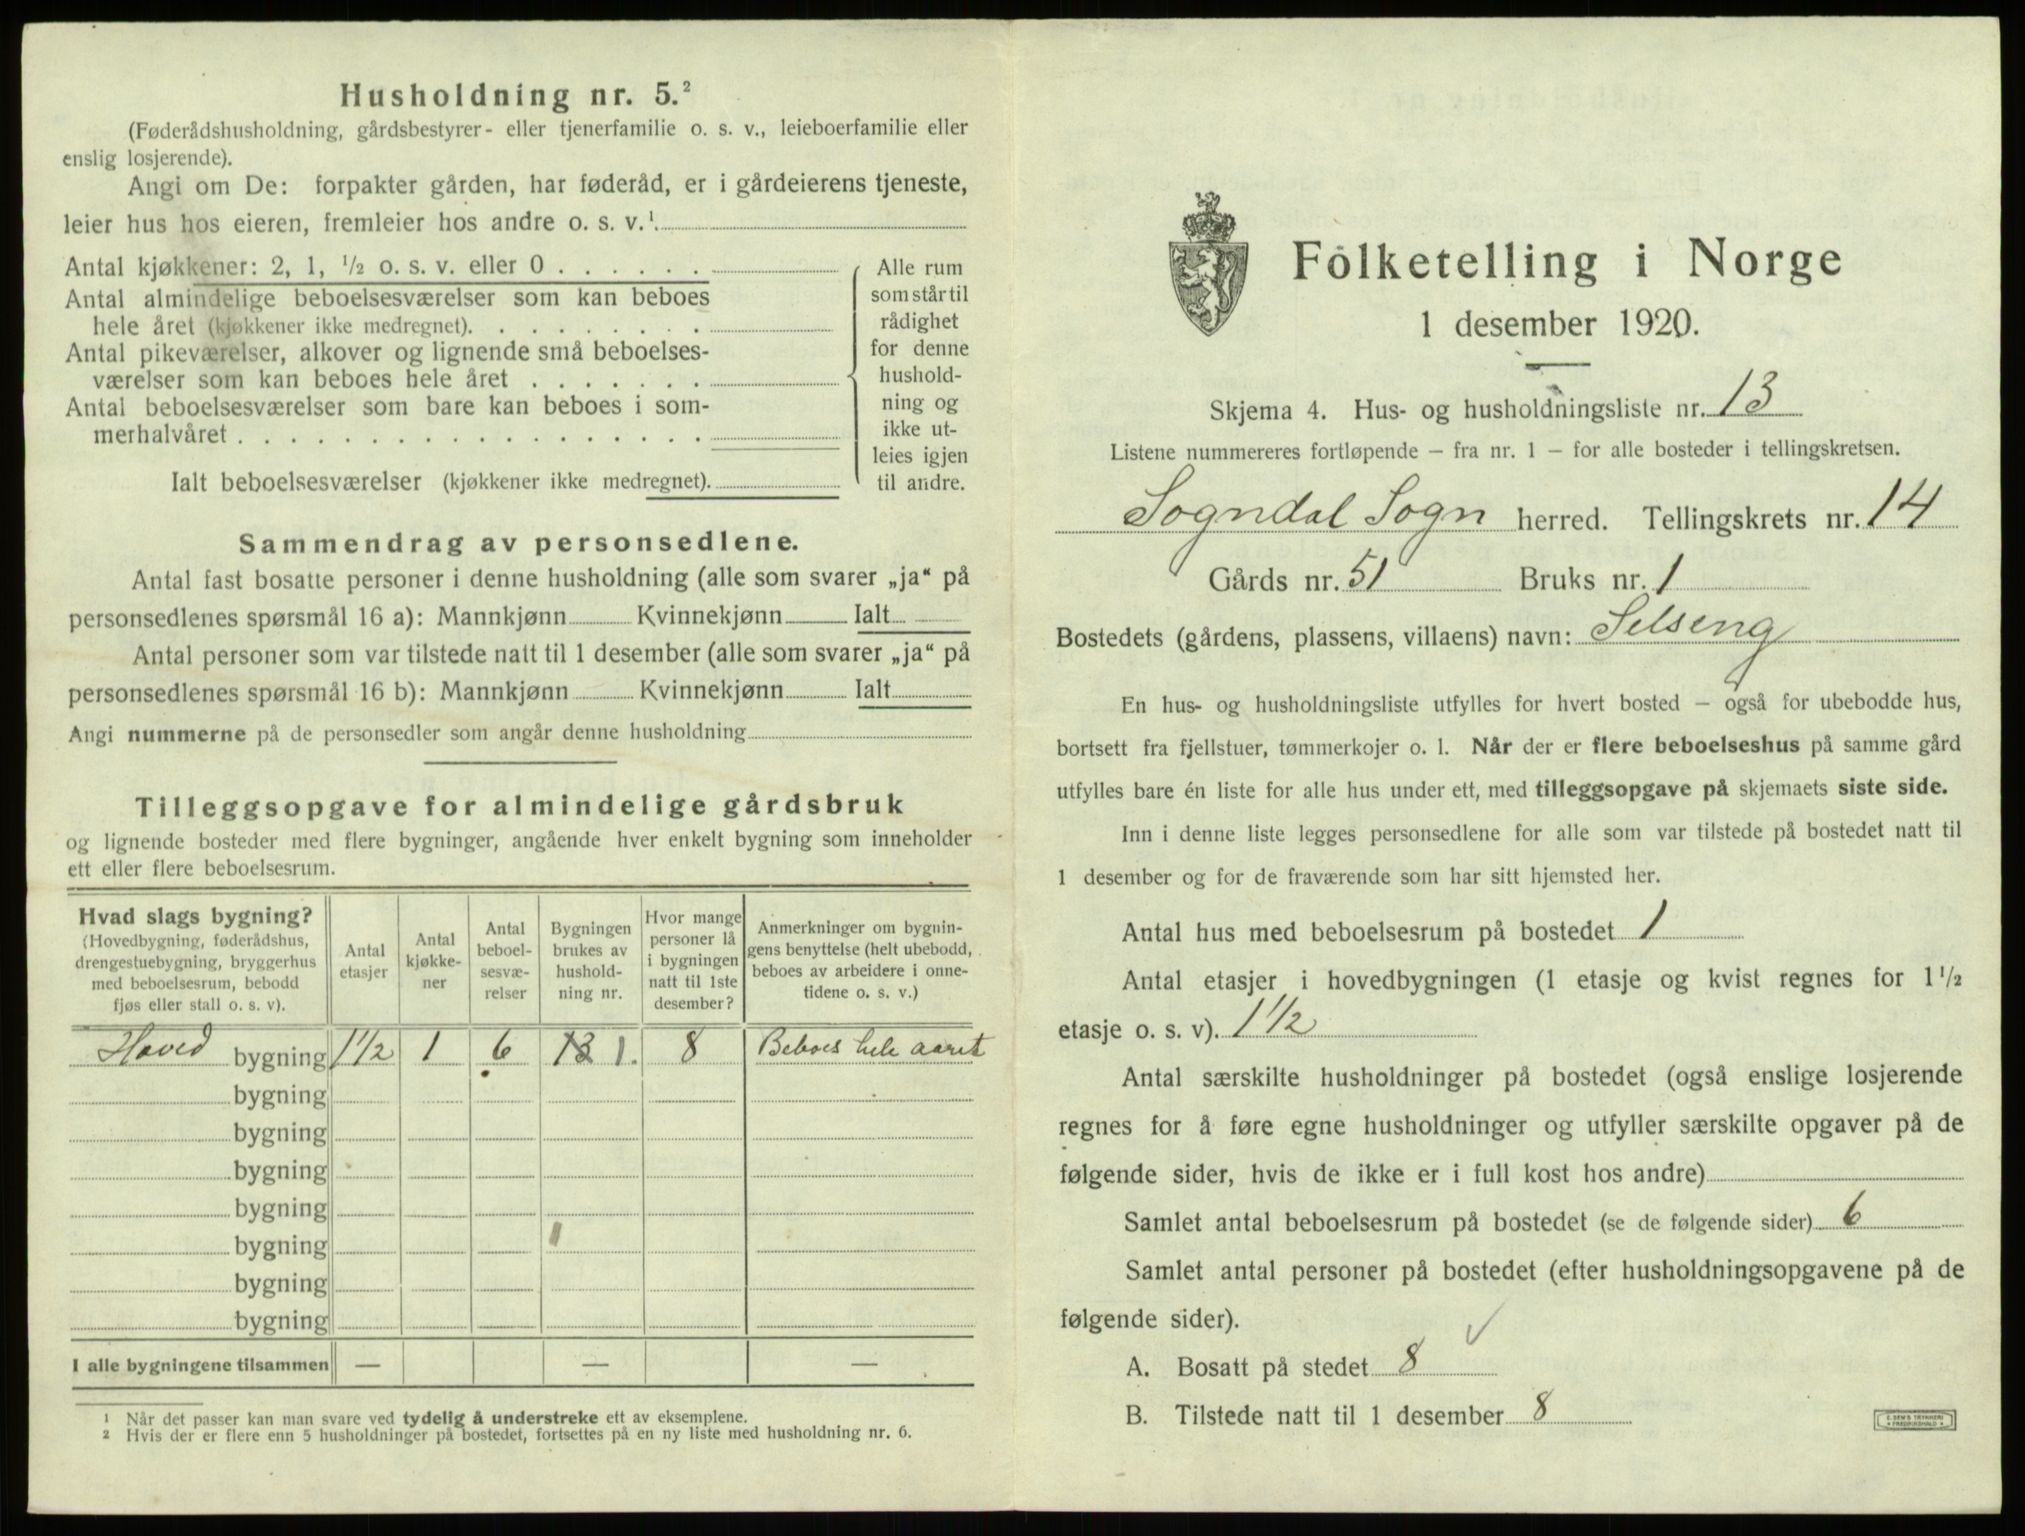 Husholdning nr. 5.²
(Føderådshusholdning, gårdsbestyrer- eller tjenerfamilie o. s. v., leieboerfamilie eller
enslig losjerende).
Angi om De: forpakter gården, har føderåd, er i gårdeierens tjeneste,
leier hus hos eieren, fremleier hos andre o. s. v.¹
Antal kjøkkener: 2, 1, ½ o. s. v. eller 0 . . . . . .
Antal almindelige beboelsesværelser som kan beboes
hele året (kjøkkener ikke medregnet). . . . . . . . .
Antal pikeværelser, alkover og lignende små beboelses-
værelser som kan beboes hele året . . . . . . .
Antal beboelsesværelser som bare kan beboes i som-
merhalvåret . . . . . . . . . . . . . . . . . .
Ialt beboelsesværelser (kjøkkener ikke medregnet).
Alle rum
som står til
rådighet
for denne
hushold-
ning og
ikke ut-
leies igjen
til andre.
Sammendrag av personsedlene.
Antal fast bosatte personer i denne husholdning (alle som svarer „ja“ på
personsedlenes spørsmål 16 a): Mannkjønn Kvinnekjønn Ialt
Antal personer som var tilstede natt til 1 desember (alle som svarer „ja“ på
personsedlenes spørsmål 16 b): Mannkjønn Kvinnekjønn Ialt
Angi nummerne på de personsedler som angår denne husholdning
Tilleggsopgave for almindelige gårdsbruk
og lignende bosteder med flere bygninger, angående hver enkelt bygning som inneholder
ett eller flere beboelsesrum.
Hvad slags bygning?
(Hovedbygning, føderådshus,
drengestuebygning, bryggerhus
med beboelsesrum, bebodd
fjøs eller stall o. s. v).
Antal
etasjer
Antal
kjøkke-
ner
Antal
beboel-
sesvæ-
relser
Bygningen
brukes av
hushold-
ning nr.
Hvor mange
personer lå
i bygningen
natt til 1ste
desember?
Anmerkninger om bygnin-
gens benyttelse (helt ubebodd,
beboes av arbeidere i onne-
tidene o. s. v.)
Hoved bygning 1½ 1 6 13 1. 8 Beboes hele aaret
bygning
bygning
bygning
bygning
bygning
bygning
bygning
I alle bygningene tilsammen — — —
¹ Når det passer kan man svare ved tydelig å understreke ett av eksemplene.
² Hvis der er flere enn 5 husholdninger på bostedet, fortsettes på en ny liste med husholdning nr. 6.
Folketelling i Norge
1 desember 1920.
Skjema 4. Hus- og husholdningsliste nr. 13
Listene nummereres fortløpende – fra nr. 1 – for alle bosteder i tellingskretsen.
Sogndal Sogn herred. Tellingskrets nr. 14
Gårds nr. 51 Bruks nr. 1
Bostedets (gårdens, plassens, villaens) navn: Selseng
En hus- og husholdningsliste utfylles for hvert bosted – også for ubebodde hus,
bortsett fra fjellstuer, tømmerkojer o. l. Når der er flere beboelseshus på samme gård
utfylles bare én liste for alle hus under ett, med tilleggsopgave på skjemaets siste side.
Inn i denne liste legges personsedlene for alle som var tilstede på bostedet natt til
1 desember og for de fraværende som har sitt hjemsted her.
Antal hus med beboelsesrum på bostedet 1
Antal etasjer i hovedbygningen (1 etasje og kvist regnes for 1½
etasje o. s. v). 1½
Antal særskilte husholdninger på bostedet (også enslige losjerende
regnes for å føre egne husholdninger og utfyller særskilte opgaver på de
følgende sider, hvis de ikke er i full kost hos andre)
Samlet antal beboelsesrum på bostedet (se de følgende sider) 6
Samlet antal personer på bostedet (efter husholdningsopgavene på de
følgende sider).
A. Bosatt på stedet 8
B. Tilstede natt til 1 desember 8